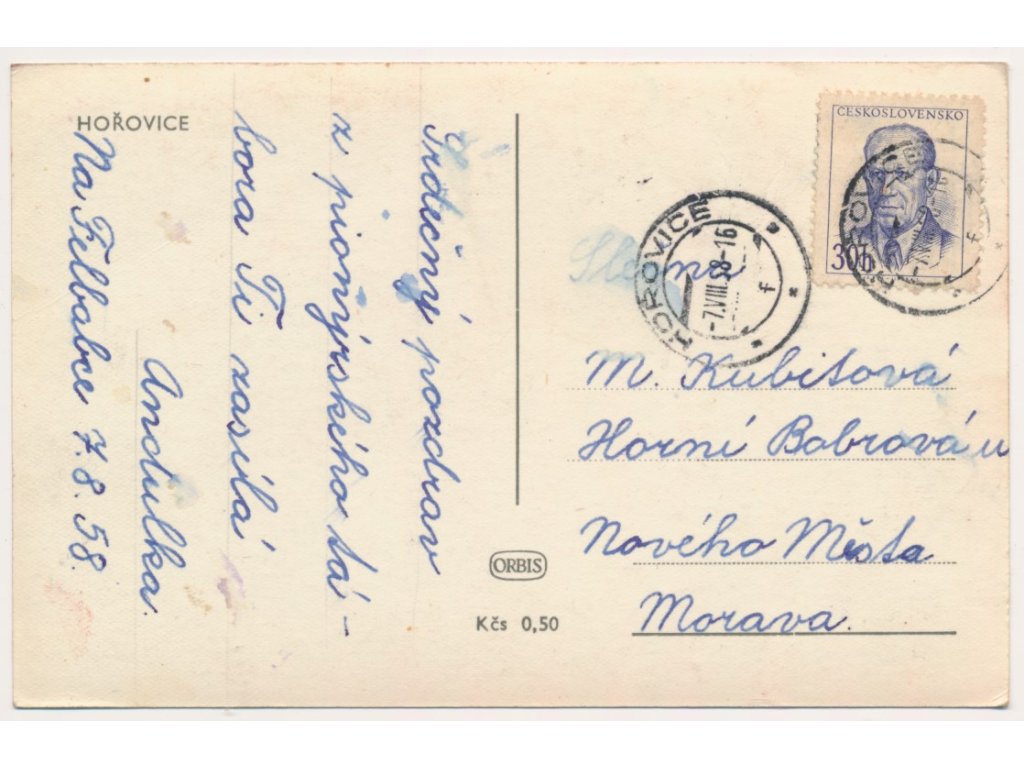 HOŘOVICE
Srdečný pozdrav
z pionýrského tá-
bora Ti zasílá
Andulka.
Na Felbabce 7.8.58.
ORBIS
Kčs 0,50
ČESKOSLOVENSKO
30h
HOŘOVICE
-7.VIII.58-16
f
Slečna
M. Kubitová
Horní Bobrová u
Nového Města
Morava.